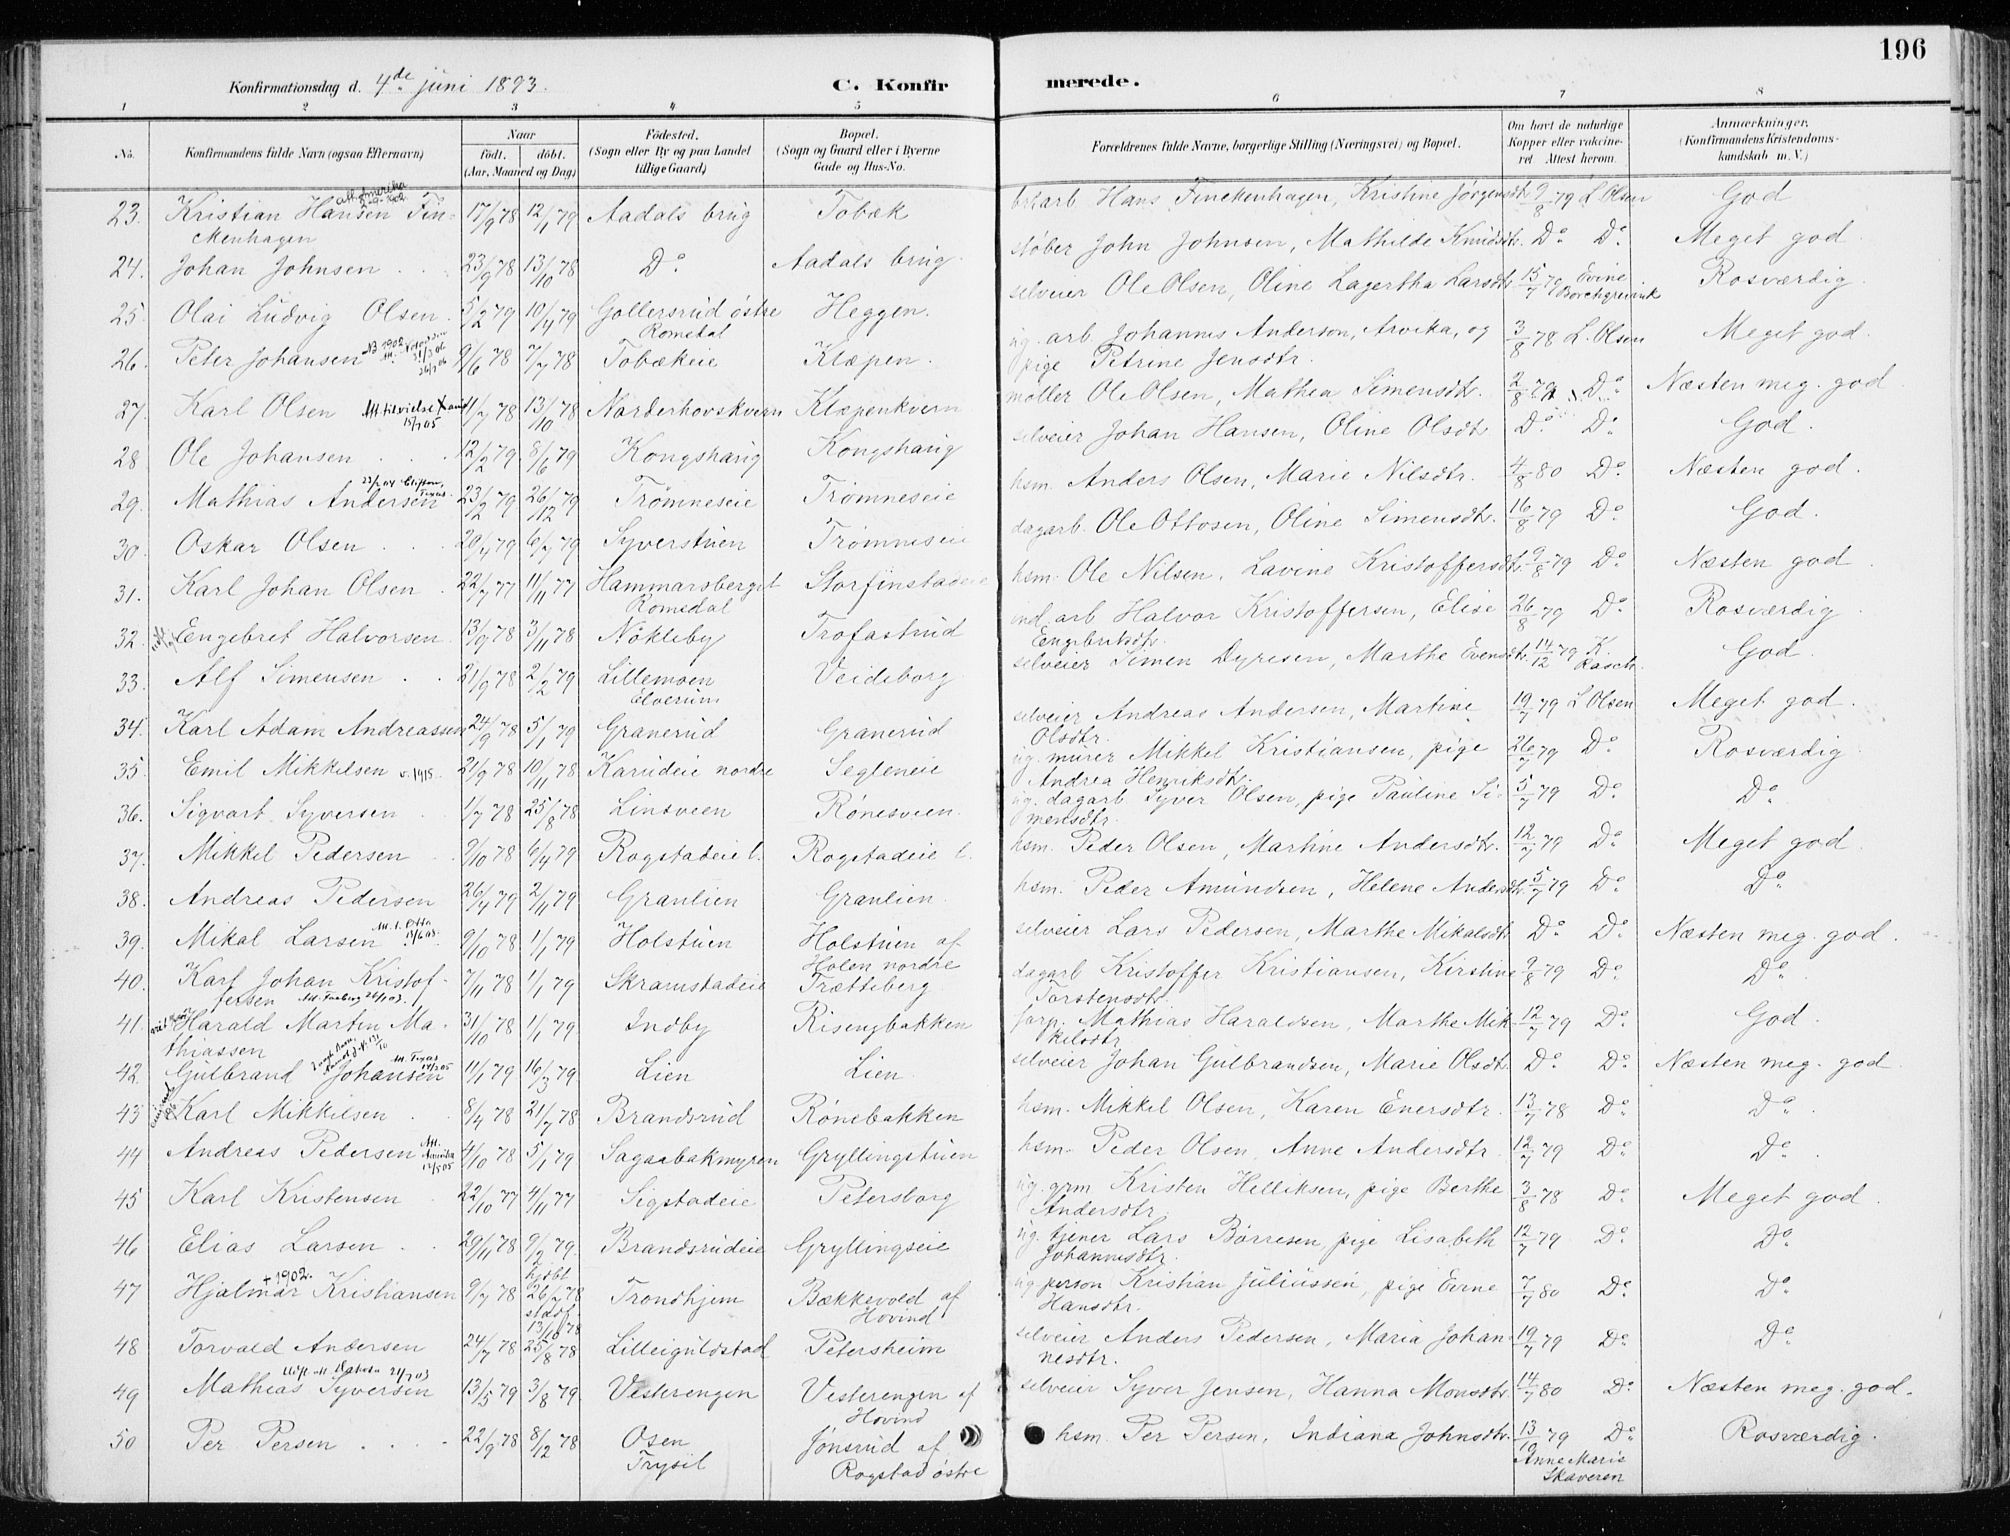 196
Konfirmationsdag d. 4de juni 1893. C. Konfirmerede.
1 2 3 4 5 6 7 8
No. Konfirmandens fulde Navn (ogsaa Efternavn) Naar födt. döbt. (Aar, Maaned og Dag) Födested. (Sogn eller By og paa Landet tillige Gaard) Bopæl. (Sogn og Gaard eller i Byerne Gade og Hus-No. Forældrenes fulde Navne, borgerlige Stilling (Næringsvei) og Bopæl. Om havt de naturlige Kopper eller vakcineret Attest herom. Anmærkninger. (Konfirmandens Kristendomskundskab m. V.)
23. Kristian Hansen Finckenhagen 17/9 78 12/1 79 Aadals brug Tobæk Hans Finckenhagen, Kristine Jørgensdtr. 9/8 79 L Olsen God
24. Johan Johnsen 23/9 78 13/10 78 Do. Aadals brug. støber John Johnsen, Mathilde Knudsdtr. Do. Do. Meget god.
25. Olai Ludvig Olsen 5/2 79 10/4 79 Gollersrud østre Romedal Heggen. selveier Ole Olsen, Oline Lagertha Larsdtr. 15/7 79 Evine Borchgrevink Rosværdig.
26. Peter Johansen 9/6 78 7/7 78 Tobækeie Klæpen. ug. arb Johannes Anderson, Arvika, og pige Petrine Jensdtr. 3/8 78 L. Olsen Meget god.
27. Karl Olsen 11/7 78 13/10 78 Norderhovskvern Klæpenkvern møller Ole Olsen, Mathea Simensdtr. 2/8 79 Do. Næsten meg. god
28 Ole Johansen 12/2 79 8/6 79 Kongshaug Kongshaug selveier Johan Hansen, Oline Olsdtr Do. Do. God.
29. Mathias Andersen 23/2 79 26/12 79 Trømneseie Trømneseie hsm. Anders Olsen, Marie Nilsdtr. 4/8 80 Do. Næsten god.
30. Oskar Olsen 20/4 79 6/7 79 Syverstuen Trømneseie dagarb. Ole Ottosen, Oline Simensdtr. 16/8 79 Do. God.
31. Karl Johan Olsen 22/7 77 11/11 77 Hammarsberget Romedal Storfinstadeie hsm. Ole Nilsen, Lavine Kristoffersdtr. 9/8 79 Do. Næsten god
32. Engebret Halvorsen 13/9 78 3/11 78 Nökleby Trofastrud ind. arb Halvor Kristoffersen, Elise Engebretsdtr. 26/8 79 Do. Rosværdig
33. Alf Simensen 21/9 78 2/2 79 Lillemoen Elverum Veideborg selveier Simen Dyresen, Marthe Evensdtr. 14/12 79 K. Rasch. God.
34. Karl Adam Andreassen 24/9 78 5/1 79 Granerud Granerud selveier Andreas Andersen, Martine Olsdtr. 19/7 79 L Olsen Meget god.
35. Emil Mikkelsen 21/9 78 10/11 78 Karudeie nordre Segleneie ug. murer Mikkel Kristiansen, pige Andrea Henriksdtr. 26/7 79 Do. Rosværdig
36. Sigvart Syversen 1/7 78 25/8 78 Linsveen Rönesveen. ug. dagarb Syver Olsen, pige Pauline Simensdtr. 5/7 79 Do. Do.
37. Mikkel Pedersen 9/10 78 6/4 79 Rogstadeie l. Rogstadeie l. hsm. Peder Olsen, Martine Andersdtr. 12/7 79 Do. Meget god.
38. Andreas Pedersen 26/4 79 2/11 79 Granlien Granlien. hsm. Peder Amundsen, Helene Andersdtr. 5/7 79 Do. Do.
39. Mikal Larsen 9/10 78 1/1 79 Holstuen Holstuen af Holen nordre selveier Lars Pedersen, Marthe Mikalsdtr Do. Do. Næsten meg. god.
40. Karl Johan Kristoffersen 7/11 78 1/1 79 Skramstadeie Trætteberg. dagarb Kristoffer Kristiansen, Kirstine Torstensdtr. 9/8 79 Do. Do.
41. Harald Martin Mathiassen 31/10 78 1/1 79 Indby Risengbakken forp. Mathias Haraldsen, Marthe Mikkelsdtr 12/7 79 Do. God.
42. Gulbrand Johansen 11/1 79 16/3 79 Lien Lien. selveier Johan Gulbrandsen, Marie Olsdtr. Do. Do. Næsten meg. god.
43 Karl Mikkelsen 8/4 78 21/7 78 Brandsrud Rönebakken hsm. Mikkel Olsen, Karen Enersdtr. 13/7 78 Do. Do.
44 Andreas Pedersen 4/10 78 5/1 79 Sagaabakmyren Gryllingstuen hsm. Peder Olsen, Anne Andersdtr. 12/7 79 Do. Do.
45 Karl Kristensen 22/10 77 4/11 77 Sigstadeie Petersborg ug. grm Kristen Helliksen, pige Berthe Andersdtr. 3/8 78 Do. Meget god.
46 Elias Larsen 29/11 78 9/2 79. Brandsrudeie Gryllingseie ug. tjener Lars Børresen, pige Lisabeth Johannesdtr. 12/7 79 Do. Do.
47 Hjalmar Kristiansen +1902. 9/7 78 hjdbt 26/7 78 stadf. 13/10 78 Trondhjem Bækkevold af Hovind ug. person Kristian Juliussen, pige Evine Hansdtr. 7/7 80 Do. Do.
48 Torvald Andersen 24/7 78 25/8 78 Lilleiguldstad Petersheim selveier Anders Pedersen, Maria Johannesdtr. 19/7 79 Do. Do.
49 Mathias Syversen 13/5 79 3/8 79 Vesterengen Vesterengen af Hovind selveier Syver Jensen, Hanna Monsdtr. 14/7 80 Do. Næsten meg. god.
50 Per Persen 22/9 78 8/12 78 Osen Trysil Jönsrud af Rogstad østre hsm. Per Persen, Indiana Johnsdtr. 13/10 79 Do. Anne Marie Skaveren Rosværdig.